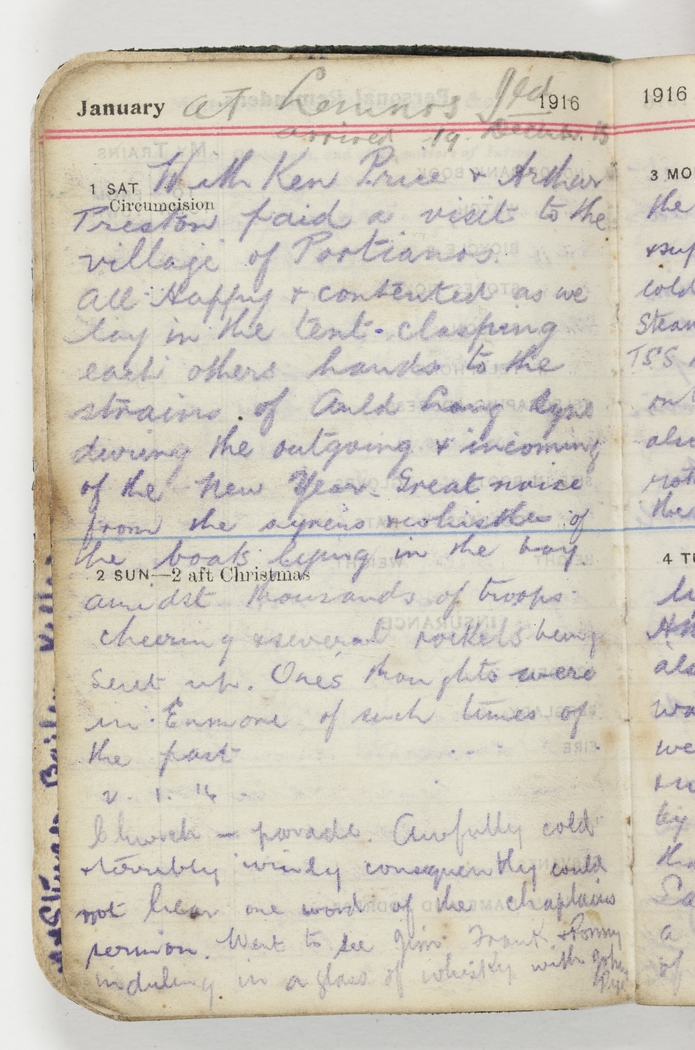 January at Lemnos Isld 1916
arrived 19. Decbr. 15
1 SAT With Ken Price & Arthur
Circumcision
Preston paid a visit to the
village of Portianos.
All Happy & contented as we
lay in the tent - clasping
each others hands to the
strains of Auld Lang Syne
during the outgoing & incoming
of the New Year. Great noise
from the syrens & whistles of
the boats lying in the bay
2 SUN—2 aft Christmas
amidst thousands of troops
cheering & several rockets being
sent up. One's thoughts were
in of such times of
the past
2. 1. 16
Church - parade. Awfully cold
& terribly windy consequently could
not hear one word of the chaplains
sermon. Went to see Jim, Frank, & Pommy
indulging in a glass of whisky with
1916
3 MO
the
cold
Steam
TSS
on
also
the
4 TU
also
we
by
a
of